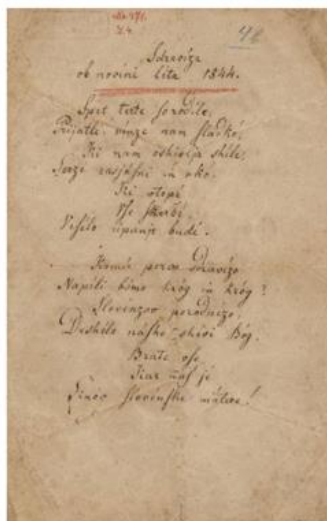 Sdravíza
ob noviné léta 1844.
Spet terte ſo rodile,
Prijatli, vinze nam ſladkó,
Ki nam oshivlja shile,
Serzé rasjáſni in oko,
Ki vtopi
Vſe ſkerbi,
upanje budi.
Komú pervo sdravizo
Napili bómo króg in króg?
Slovénzov porodnizo,
Deshélo náſho shivi Bóg,
Brate vſe,
Kar naſ je
Sinov ſlovénſhe mátere!
48